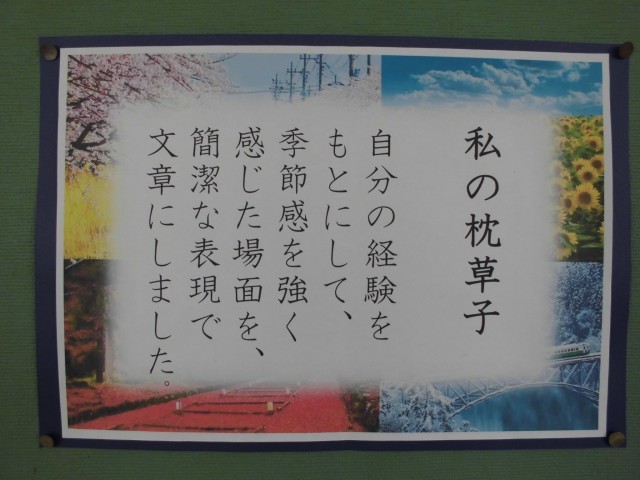 私の枕草子
自分の経験を
もとにして、
季節感を強く
感じた場面を、
簡潔な表現で
文章にしました。